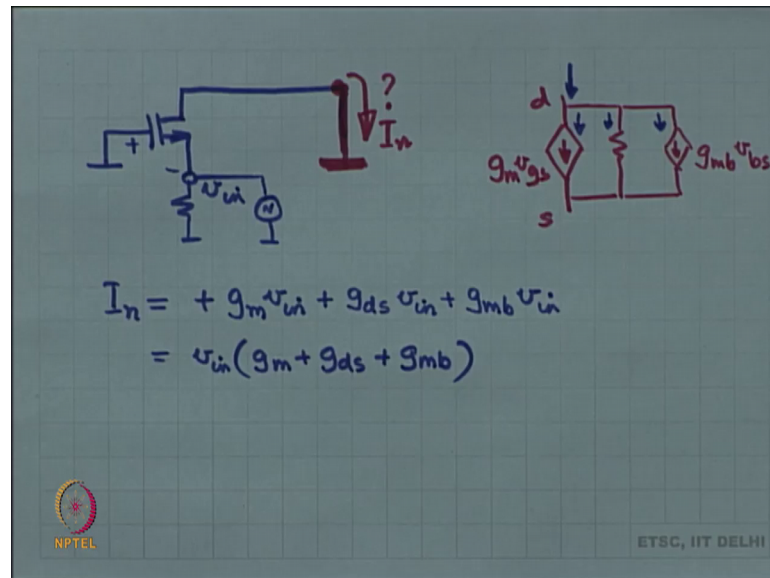 ?
I_n
+
-
v_in
d
g_m v_gs
g_mb v_bs
s
I_n = + g_m v_in + g_ds v_in + g_mb v_in
= v_in (g_m + g_ds + g_mb)
NPTEL
ETSC, IIT DELHI